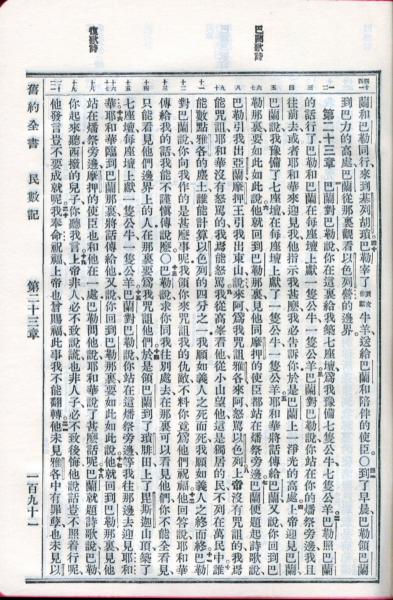 巴蘭歌詩
復歌詩
蘭和巴勒同行來到基列胡瑣巴勒宰了牛羊送給巴蘭和陪伴的使臣○到了早晨巴勒領巴蘭
到巴力的高處巴蘭從那裏觀看以色列營的邊界
第二十三章 巴蘭對巴勒說你在這裏給我築七座壇爲我豫備七隻公牛七隻公羊巴勒照巴蘭
的話行了巴勒和巴蘭在每座壇上獻一隻公牛一隻公羊巴蘭對巴勒說你站在你的燔祭旁邊我且
往前去或者耶和華來迎見我他指示我甚麽我必告訴你於是巴蘭上一淨光的高處上帝迎見巴蘭
巴蘭說我豫備了七座壇在每座壇上獻了一隻公牛一隻公羊耶和華將話傳給巴蘭又說你回到巴
勒那裏要如此如此說他就回到巴勒那裏見他同摩押的使臣都站在燔祭旁邊巴蘭便題起詩歌說
巴勒引我出亞蘭摩押王引我出東山說來阿爲我咒詛雅各來阿怒罵以色列上帝沒有咒詛的我焉
能咒詛耶和華沒有怒罵的我焉能怒罵我從高峯看他從小山望他這是獨居的民不列在萬民中誰
能數點雅各的塵土誰能計算以色列的四分之一我願如義人之死而死我願如義人之終而終巴勒
對巴蘭說你向我作的是甚麽事呢我領你來咒詛我的仇敵不料你竟爲他們祝福他回答說耶和華
傳給我的話我能不謹愼傳說麽○巴勒說求你同我往別處去在那裏可以看見他們你不能全看見
只能看見他們邊界上的人在那裏要爲我咒詛他們於是領巴蘭到了瑣腓田上了毘斯迦山頂築了
七座壇每座壇上獻一隻公牛一隻公羊巴蘭對巴勒說你站在這燔祭旁邊等我往那邊去迎見耶和
華耶和華臨到巴蘭那裏將話傳給他又說你回到巴勒那裏要如此如此說他就回到巴勒那裏見他
站在燔祭旁邊摩押的使臣也和他在一處巴勒問他說耶和華說了甚麽話呢巴蘭就題詩歌說巴勒
你起來聽西撥的兒子你聽我言上帝非人必不致說謊也非人子必不致後悔他說話豈不照着行呢
他發言豈不要成就呢我奉命祝福上帝也曾賜福此事我不能翻轉他未見雅各中有罪孽也未見以
舊約全書 民數記 第二十三章 一百九十一